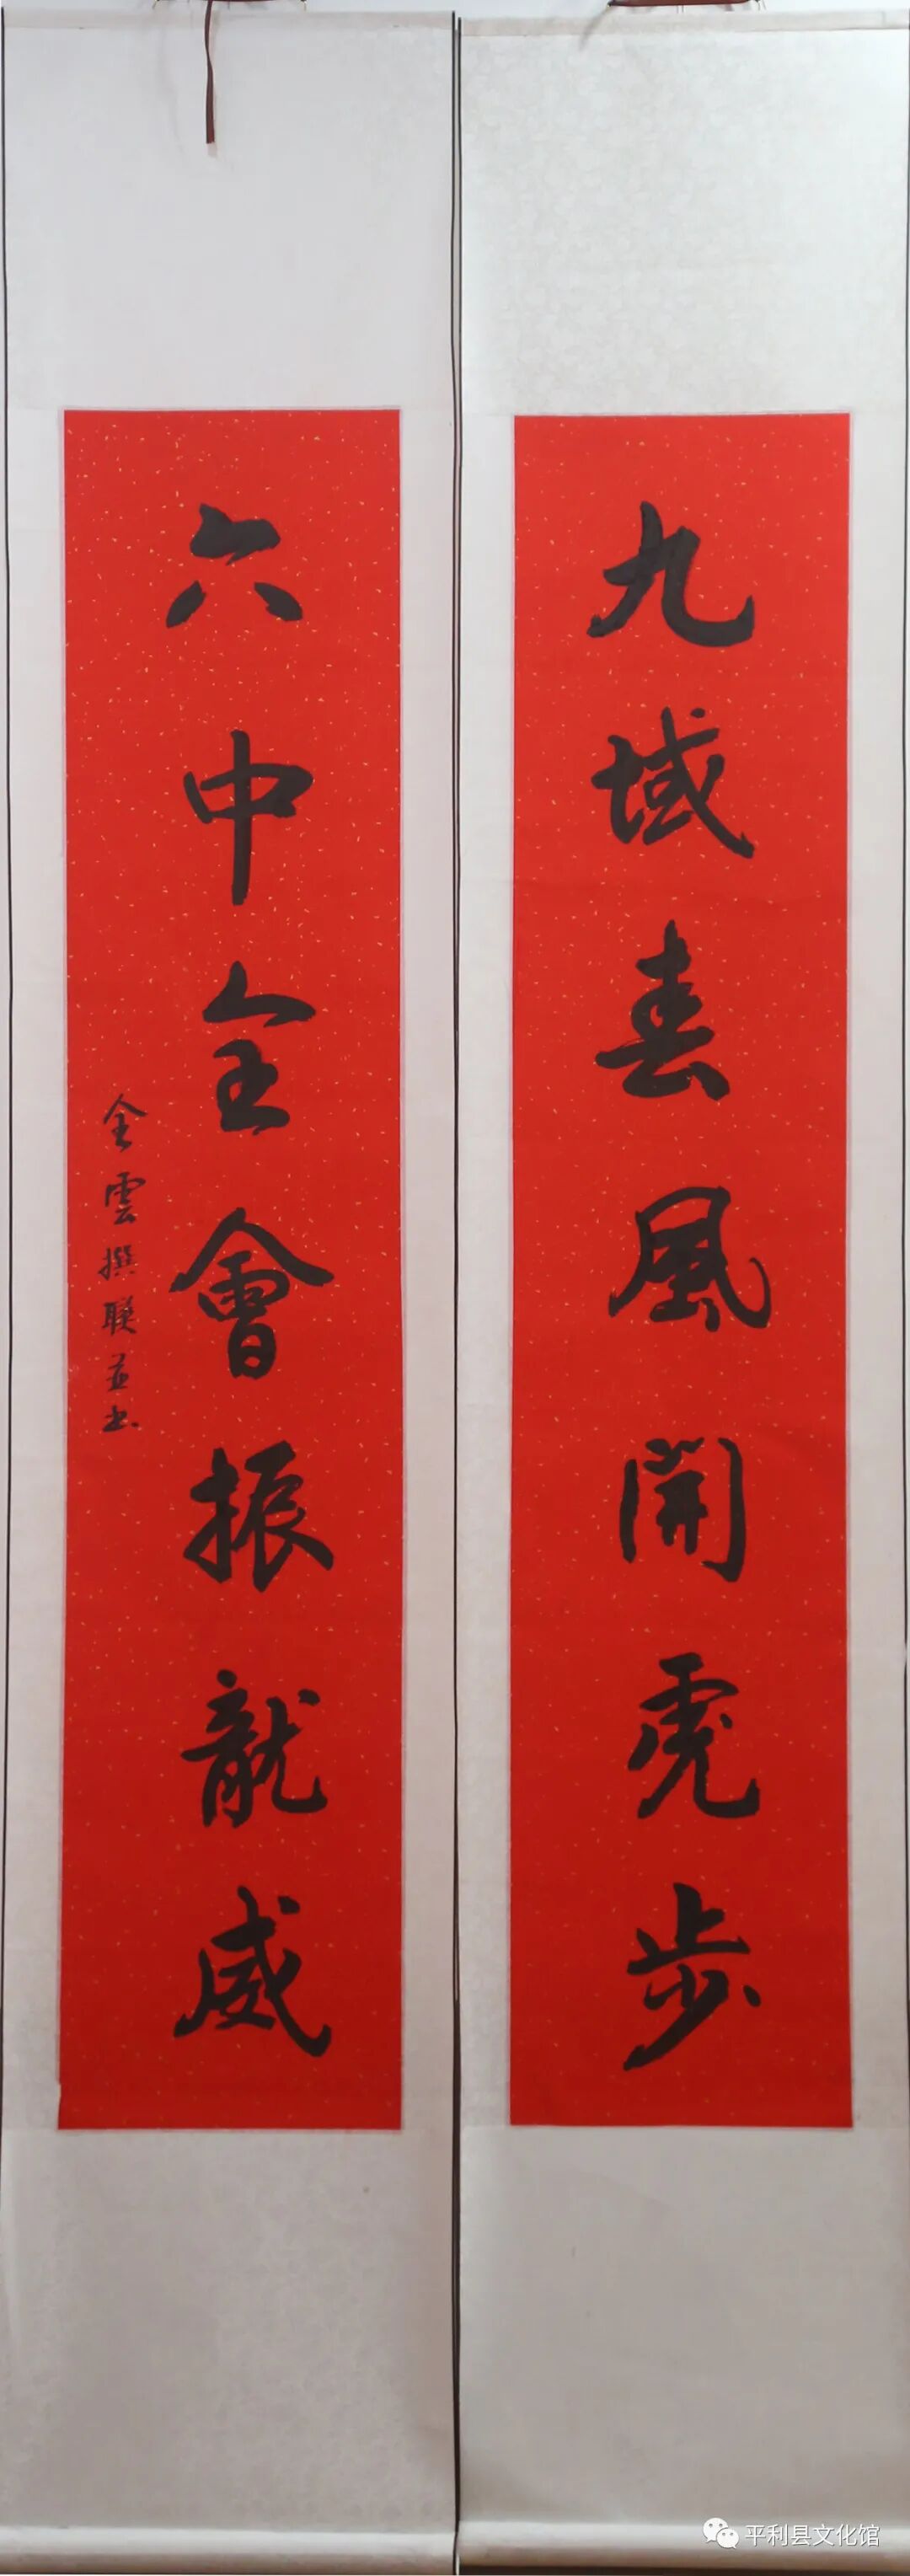 九域春風開虎步
六中全會振龍威
全雲撰联並书
平利县文化馆